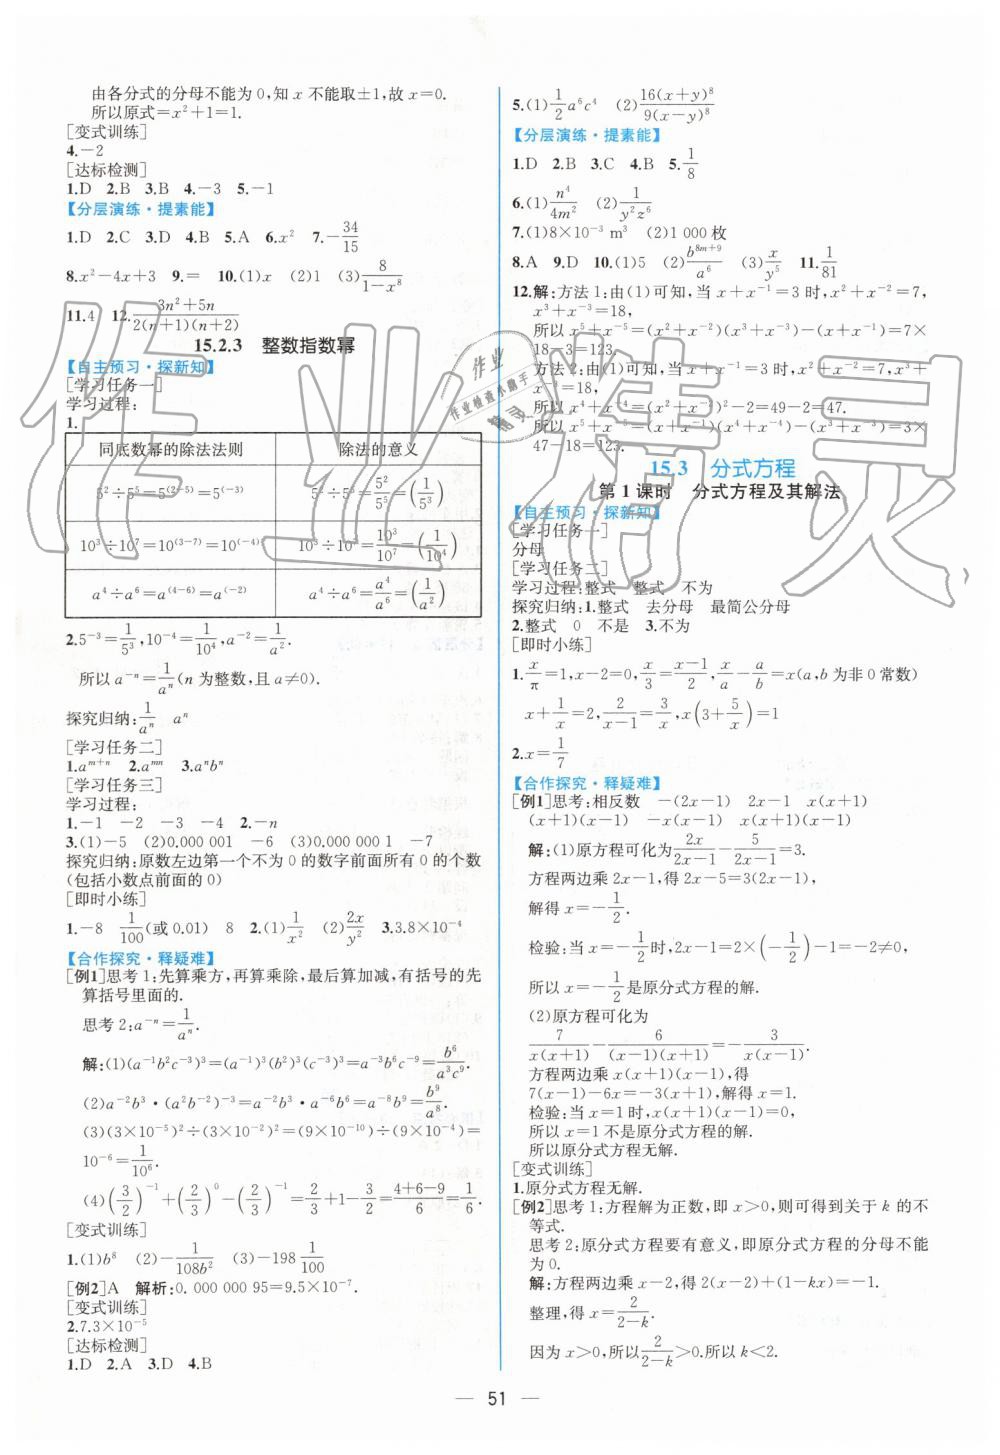 由各分式的分母不能为0,知x不能取±1,故x=0.
所以原式=x²+1=1.
[变式训练]
4.-2
[达标检测]
1.D 2.B 3.B 4.-3 5.-1
【分层演练·提素能】
1.D 2.C 3.D 4.B 5.A 6.x² 7.-34/15
8.x²-4x+3 9.= 10.(1)x (2)1 (3)8/(1-x⁸)
11.4 12.(3n²+5n)/(2(n+1)(n+2))
15.2.3 整数指数幂
【自主预习·探新知】
[学习任务一]
学习过程:
1.
同底数幂的除法法则 除法的意义
5²÷5⁵=5^(2-5)=5^(-3) 5²÷5⁵=5²/5⁵=(1/5³)
10³÷10⁷=10^(3-7)=10^(-4) 10³÷10⁷=10³/10⁷=(1/10⁴)
a⁴÷a⁶=a^(4-6)=a^(-2) a⁴÷a⁶=a⁴/a⁶=(1/a²)
2.5⁻³=1/5³,10⁻⁴=1/10⁴,a⁻²=1/a².
所以a⁻ⁿ=1/aⁿ(n为整数,且a≠0).
探究归纳:1/aⁿ aⁿ
[学习任务二]
1.a^(m+n) 2.a^(mn) 3.aⁿbⁿ
[学习任务三]
学习过程:
1.-1 -2 -3 -4 2.-n
3.(1)-5 (2)0.000 001 -6 (3)0.000 000 1 -7
探究归纳:原数左边第一个不为0的数字前面所有0的个数
(包括小数点前面的0)
[即时小练]
1.-8 1/100(或0.01) 8 2.(1)1/x² (2)2x/y² 3.3.8×10⁻⁴
【合作探究·释疑难】
[例1]思考1:先算乘方,再算乘除,最后算加减,有括号的先
算括号里面的.
思考2:a⁻ⁿ=1/aⁿ.
解:(1)(a⁻¹b²c⁻³)³=(a⁻¹)³(b²)³(c⁻³)³=a⁻³b⁶c⁻⁹=b⁶/(a³c⁹).
(2)a⁻²b³·(a²b⁻²)⁻³=a⁻²b³·a⁻⁶b⁶=a⁻⁸b⁹=b⁹/a⁸.
(3)(3×10⁻⁵)²÷(3×10⁻²)²=(9×10⁻¹⁰)÷(9×10⁻⁴)=
10⁻⁶=1/10⁶.
(4)(3/2)⁻¹+(2/3)⁰-(2/3)⁻¹=2/3+1-3/2=(4+6-9)/6=1/6.
[变式训练]
1.(1)b⁸ (2)-1/(108b²) (3)-198 1/100
[例2]A 解析:0.000 000 95=9.5×10⁻⁷.
[变式训练]
2.7.3×10⁻⁵
[达标检测]
1.D 2.A 3.D 4.B
5.(1)1/2 a⁶c⁴ (2)16(x+y)⁸/9(x-y)⁸
【分层演练·提素能】
1.D 2.B 3.C 4.B 5.1/8
6.(1)n⁴/4m² (2)1/(y²z⁶)
7.(1)8×10⁻³ m³ (2)1 000枚
8.A 9.D 10.(1)5 (2)b^(8m+9)/a⁶ (3)x/y⁵ 11.1/81
12.解:方法1:由(1)可知,当x+x⁻¹=3时,x²+x⁻²=7,
x³+x⁻³=18,
所以x⁵+x⁻⁵=(x²+x⁻²)(x³+x⁻³)-(x+x⁻¹)=7×
18-3=123.
方法2:由(1)可知,当x+x⁻¹=3时,x²+x⁻²=7,x³+
x⁻³=18,
所以x⁴+x⁻⁴=(x²+x⁻²)²-2=49-2=47.
所以x⁵+x⁻⁵=(x+x⁻¹)(x⁴+x⁻⁴)-(x³+x⁻³)=3×
47-18=123.
15.3 分式方程
第1课时 分式方程及其解法
【自主预习·探新知】
[学习任务一]
分母
[学习任务二]
学习过程:整式 整式 不为
探究归纳:1.整式 去分母 最简公分母
2.整式 0 不是 3.不为
[即时小练]
1.x/π=1,x-2=0,x/3=(x-1)/2,x/a-a/b=x(a,b为非0常数)
x+1/x=2,2/(x-1)=3/x,x(3+5/x)=1
2.x=1/7
【合作探究·释疑难】
[例1]思考:相反数 -(2x-1) 2x-1 x(x+1)
(x+1)(x-1) -x(x-1) x(x+1)(x-1)
解:(1)原方程可化为2x/(2x-1)-5/(2x-1)=3.
方程两边乘2x-1,得2x-5=3(2x-1),
解得x=-1/2.
检验:当x=-1/2时,2x-1=2×(-1/2)-1=-2≠0,
所以x=-1/2是原分式方程的解.
(2)原方程可化为
7/(x(x+1))-6/((x-1)(x+1))=-3/(x(x-1)).
方程两边乘x(x+1)(x-1),得
7(x-1)-6x=-3(x+1),解得x=1.
检验:当x=1时,x(x+1)(x-1)=0,
所以x=1不是原分式方程的解.
所以原分式方程无解.
[变式训练]
1.原分式方程无解.
[例2]思考1:方程解为正数,即x>0,则可得到关于k的不
等式.
思考2:原分式方程要有意义,即原分式方程的分母不能
为0.
解:方程两边乘x-2,得2(x-2)+(1-kx)=-1.
整理,得x=2/(2-k).
因为x>0,所以2/(2-k)>0,所以k<2.
51
作业精灵
作业
作业检查小助手
精灵